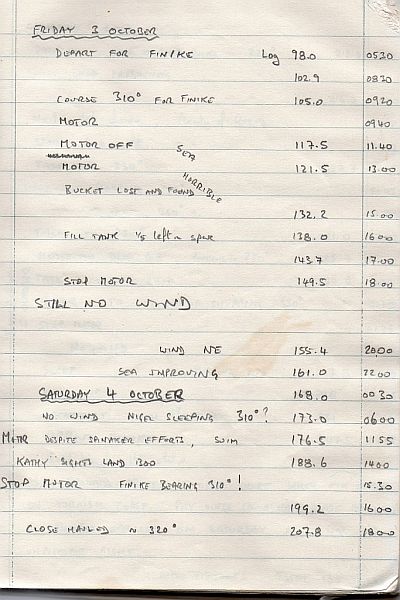 FRIDAY 3 OCTOBER
DEPART FOR FINIKE Log 98.0 0530
102.9 0830
COURSE 310° FOR FINIKE 105.0 0920
MOTOR 0940
MOTOR OFF 117.5 11.40
SEA HORRIBLE
MOTOR 121.5 13.00
BUCKET LOST AND FOUND
132.2 15.00
FILL TANK 1/3 left in spare 138.0 1600
143.7 17.00
STOP MOTOR 149.5 18.00
STILL NO WIND
WIND NE 155.4 2000
SEA IMPROVING 161.0 2200
SATURDAY 4 OCTOBER 168.0 0030
NO WIND NIGEL SLEEPING 310°? 173.0 0600
MOTOR DESPITE SPINAKER EFFORTS, SWIM 176.5 1155
KATHY SIGHTS LAND 1300 188.6 1400
STOP MOTOR FINIKE BEARING 310°! 15.30
199.2 1600
CLOSE HAULED ~ 320° 207.8 1800